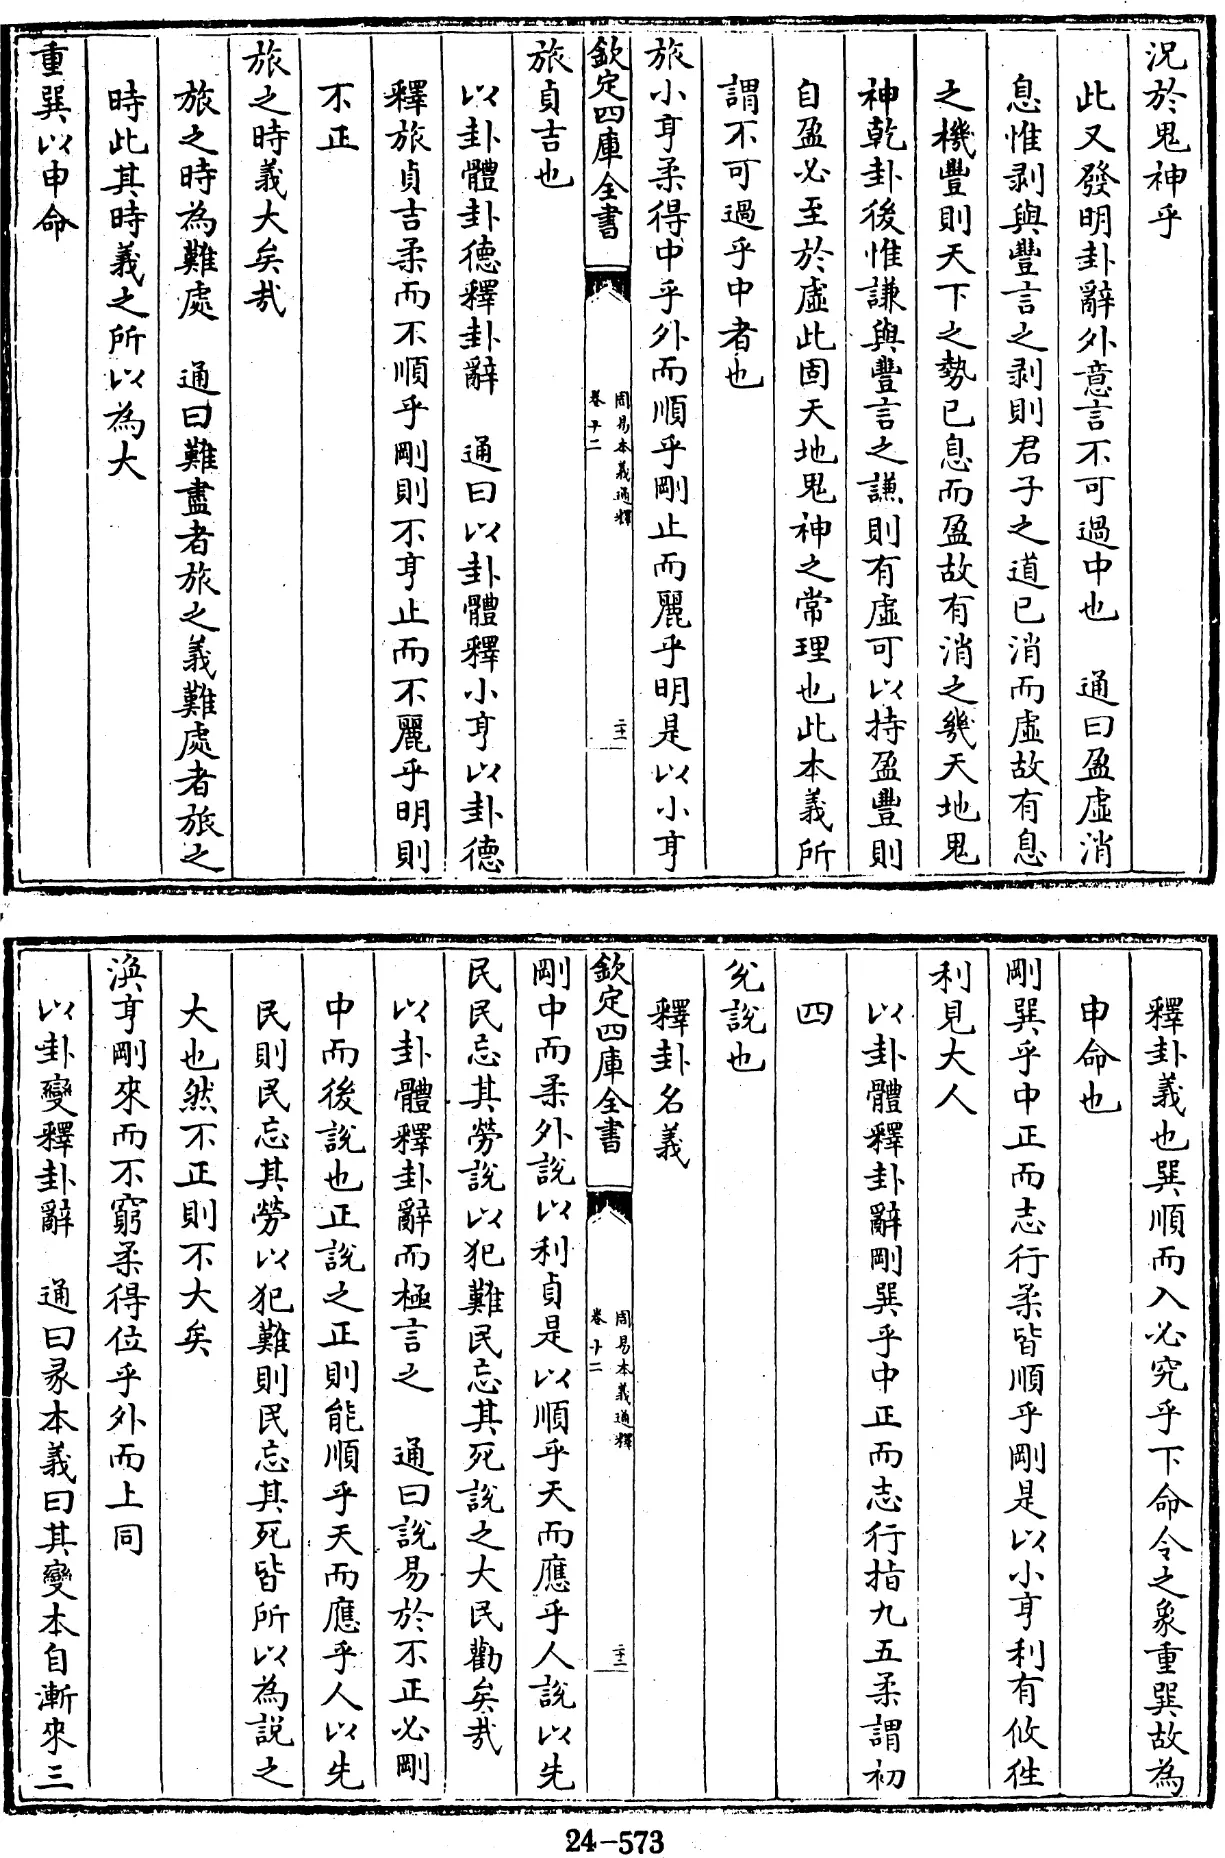 況於鬼神乎
此又發明卦辭外意言不可過中也　通曰盈虛消
息惟剥與豐言之剥則君子之道已消而虛故有息
之機豐則天下之勢已息而盈故有消之幾天地鬼
神乾卦後惟謙與豐言之謙則有虛可以持盈豐則
自盈必至於虛此固天地鬼神之常理也此本義所
謂不可過乎中者也
旅小亨柔得中乎外而順乎剛止而麗乎明是以小亨
欽定四庫全書
周易本義通釋
卷十二
二十一
旅貞吉也
以卦體卦德釋卦辭　通曰以卦體釋小亨以卦德
釋旅貞吉柔而不順乎剛則不亨止而不麗乎明則
不正
旅之時義大矣哉
旅之時為難處　通曰難盡者旅之義難處者旅之
時此其時義之所以為大
重巽以申命
釋卦義也巽順而入必究乎下命令之象重巽故為
申命也
剛巽乎中正而志行柔皆順乎剛是以小亨利有攸往
利見大人
以卦體釋卦辭剛巽乎中正而志行指九五柔謂初
四
兌說也
釋卦名義
欽定四庫全書
周易本義通釋
卷十二
二十二
剛中而柔外說以利貞是以順乎天而應乎人說以先
民民忘其勞說以犯難民忘其死說之大民勸矣哉
以卦體釋卦辭而極言之　通曰說易於不正必剛
中而後說也正說之正則能順乎天而應乎人以先
民則民忘其勞以犯難則民忘其死皆所以為說之
大也然不正則不大矣
渙亨剛來而不窮柔得位乎外而上同
以卦變釋卦辭　通曰彖本義曰其變本自漸來三
24-573